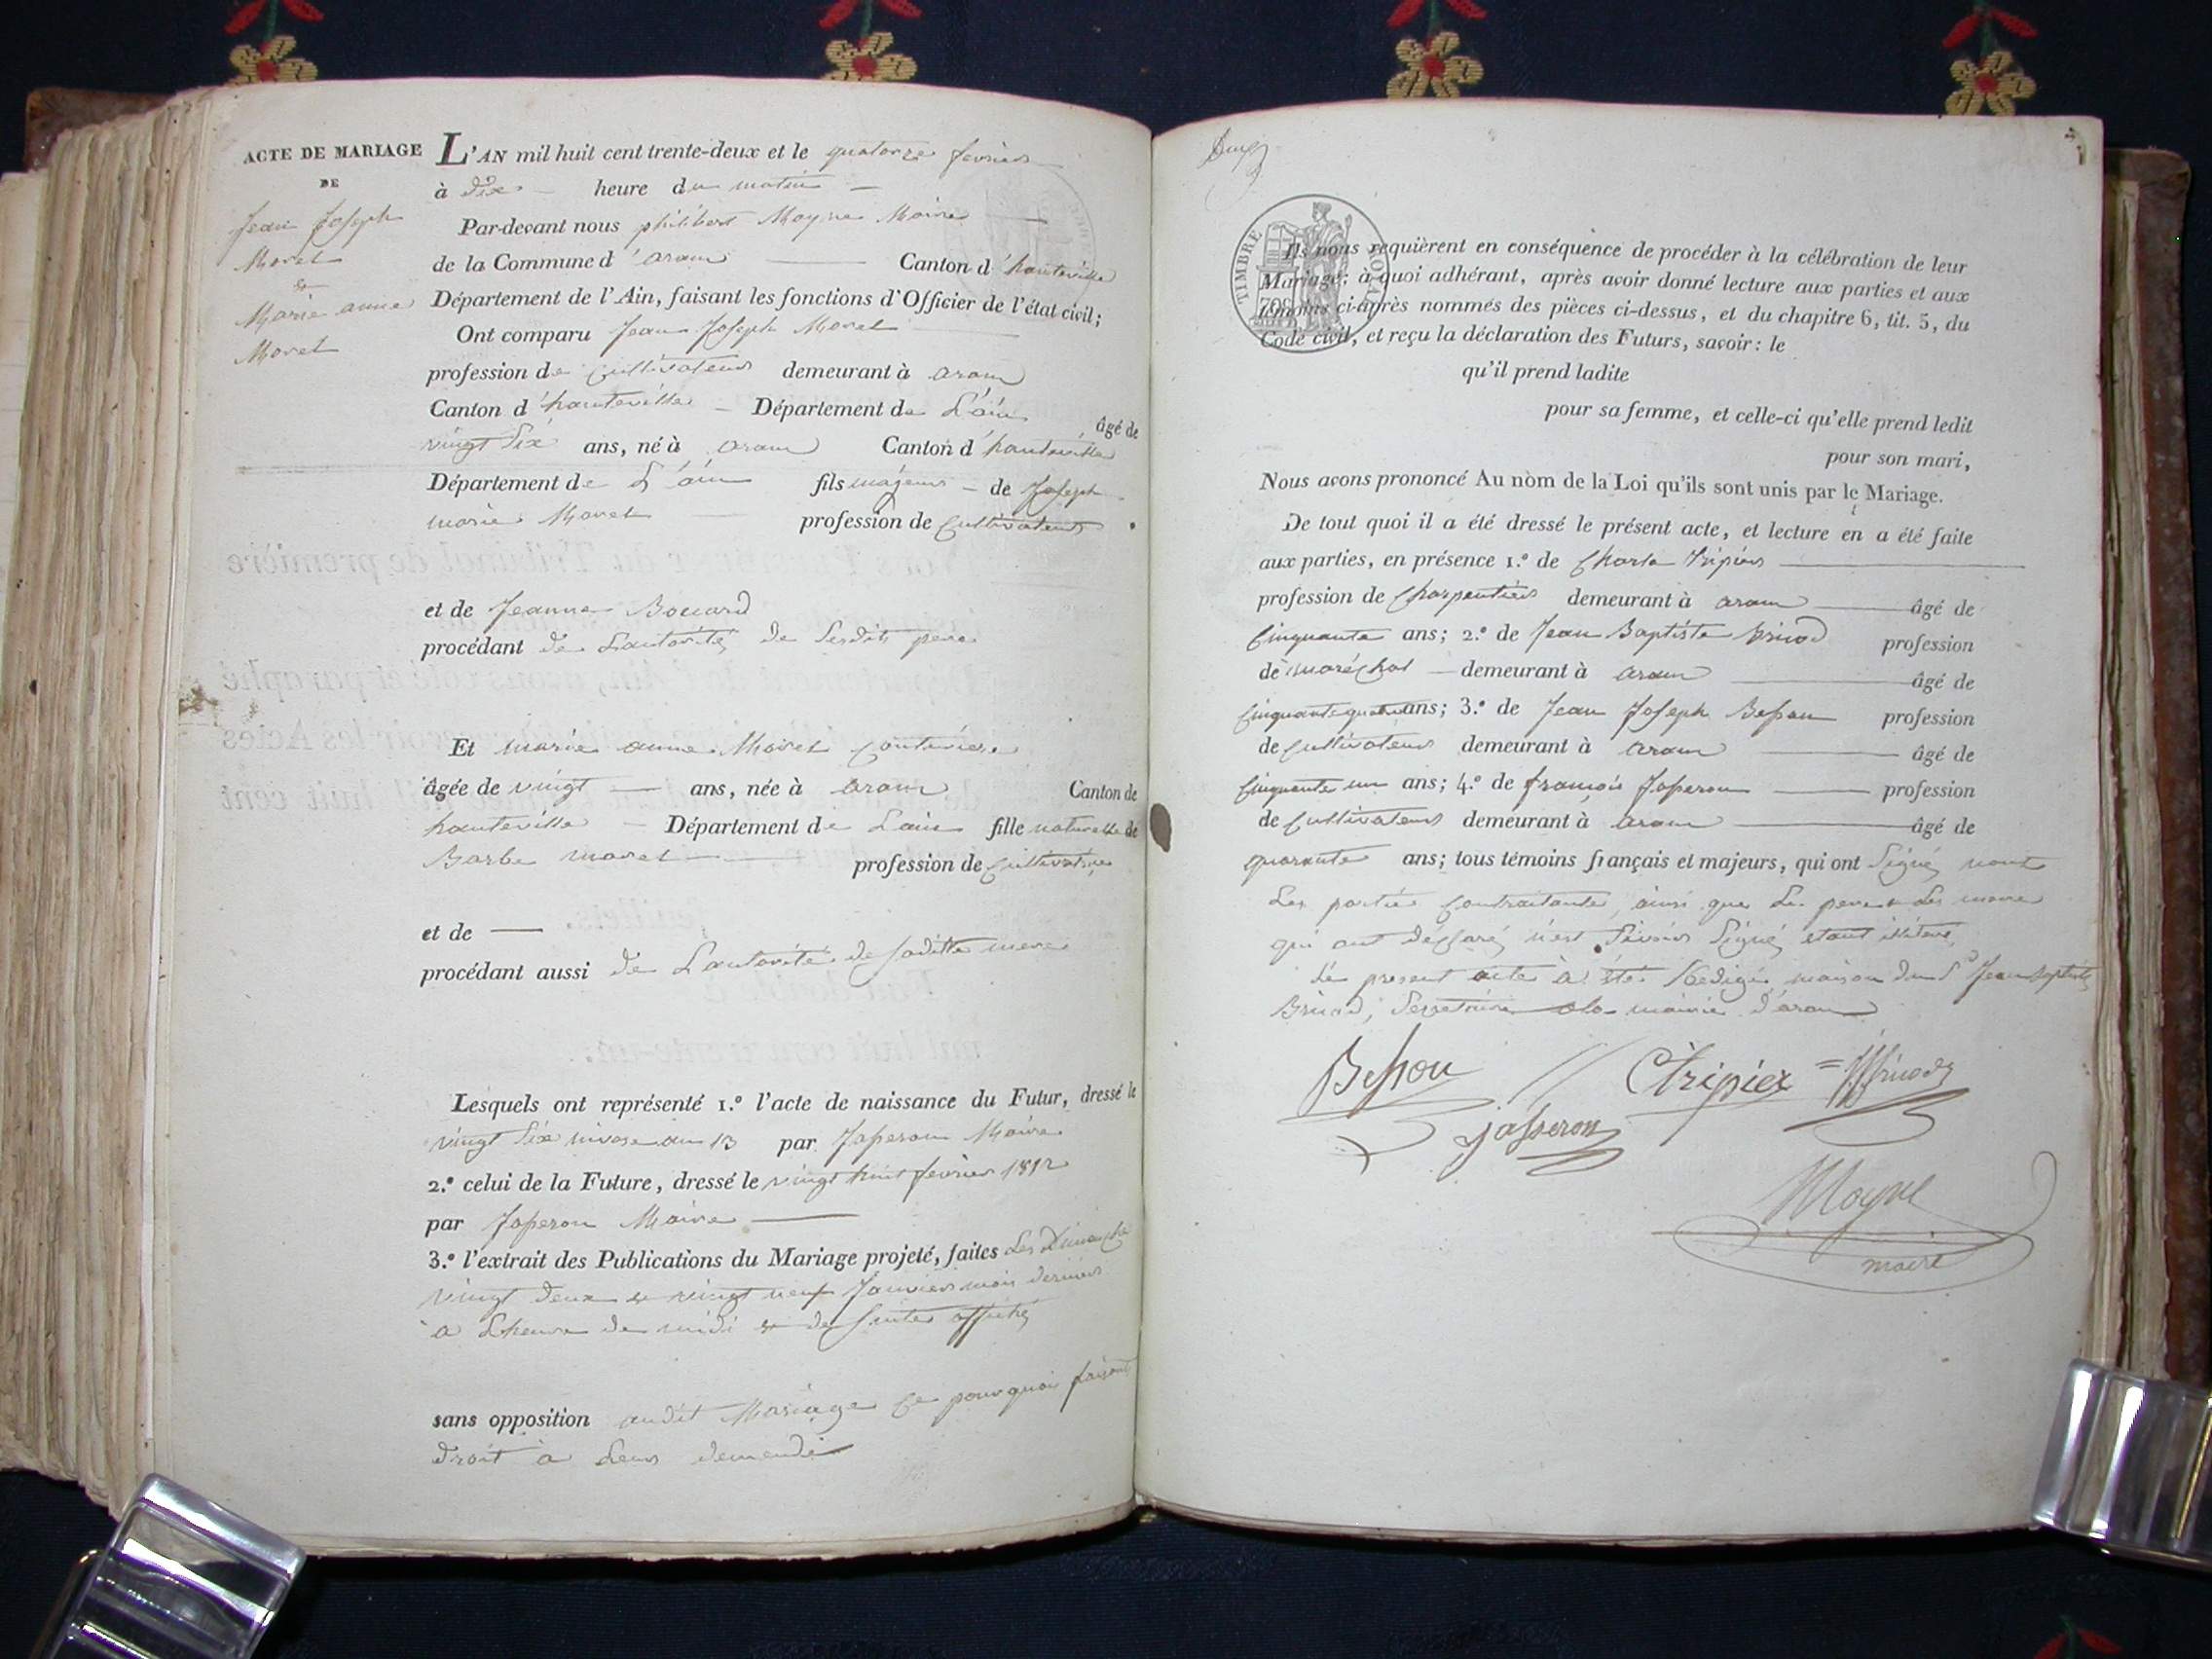 ACTE DE MARIAGE
DE
Jean Joseph
Morel
&
Marie anne
Morel
L'AN mil huit cent trente-deux et le quatorze fevrier
à dix heure du matin
Par-devant nous philibert Moyne Maire
de la Commune d'aranc Canton d'hauteville
Département de l'Ain, faisant les fonctions d'Officier de l'état civil;
Ont comparu Jean Joseph Morel
profession de Cultivateur demeurant à aranc
Canton d'hauteville Département de L'ain âgé de
vingt Six ans, né à aranc Canton d'hauteville
Département de L'ain fils majeur de Joseph
marie Morel profession de Cultivateur
et de Jeanne Bouard
procédant de Lautorité de Sesdits pere
Et marie anne Morel Couturiere
âgée de vingt ans, née à aranc Canton de
hauteville Département de Lain fille naturelle de
Barbe morel profession de Cultivatrice
et de
procédant aussi de Lautorité de Saditte mere
Lesquels ont représenté 1.º l'acte de naissance du Futur, dressé le
vingt Six nivose an 13 par Jasseron Maire
2.º celui de la Future, dressé le vingt huit fevrier 1812
par Jasseron Maire
3.º l'extrait des Publications du Mariage projeté, faites Les Dimanche
vingt deux & vingt neuf Janvier mois dernier
a Lheure de midi & de Suite affiché
sans opposition audit Mariage Ce pourquoi faisant
droit à Leur demande
TIMBRE ROYAL
Ils nous requièrent en conséquence de procéder à la célébration de leur
Mariage; à quoi adhérant, après avoir donné lecture aux parties et aux
témoins ci-après nommés des pièces ci-dessus, et du chapitre 6, tit. 5, du
Code civil, et reçu la déclaration des Futurs, savoir: le
qu'il prend ladite
pour sa femme, et celle-ci qu'elle prend ledit
pour son mari,
Nous avons prononcé Au nom de la Loi qu'ils sont unis par le Mariage.
De tout quoi il a été dressé le présent acte, et lecture en a été faite
aux parties, en présence 1.º de Charle Tripier
profession de Charpentier demeurant à aranc âgé de
Cinquante ans; 2.º de Jean Baptiste Brunod profession
de maréchal demeurant à aranc âgé de
Cinquante quatre ans; 3.º de Jean Joseph Besson profession
de Cultivateur demeurant à aranc âgé de
Cinquante un ans; 4.º de françois Jasseron profession
de Cultivateur demeurant à aranc âgé de
quarante ans; tous témoins français et majeurs, qui ont Signé nont
Les partie Contraitante, ainsi que Le pere & Les mere
qui ont declaré n'est Savoir Signé etant illiteré
Le present acte à été Redigé maison du S.r Jean Baptiste
Brunod, Secretaire a la mairie d'aranc
Besson Ctripier
jasseron
Moyne
maire